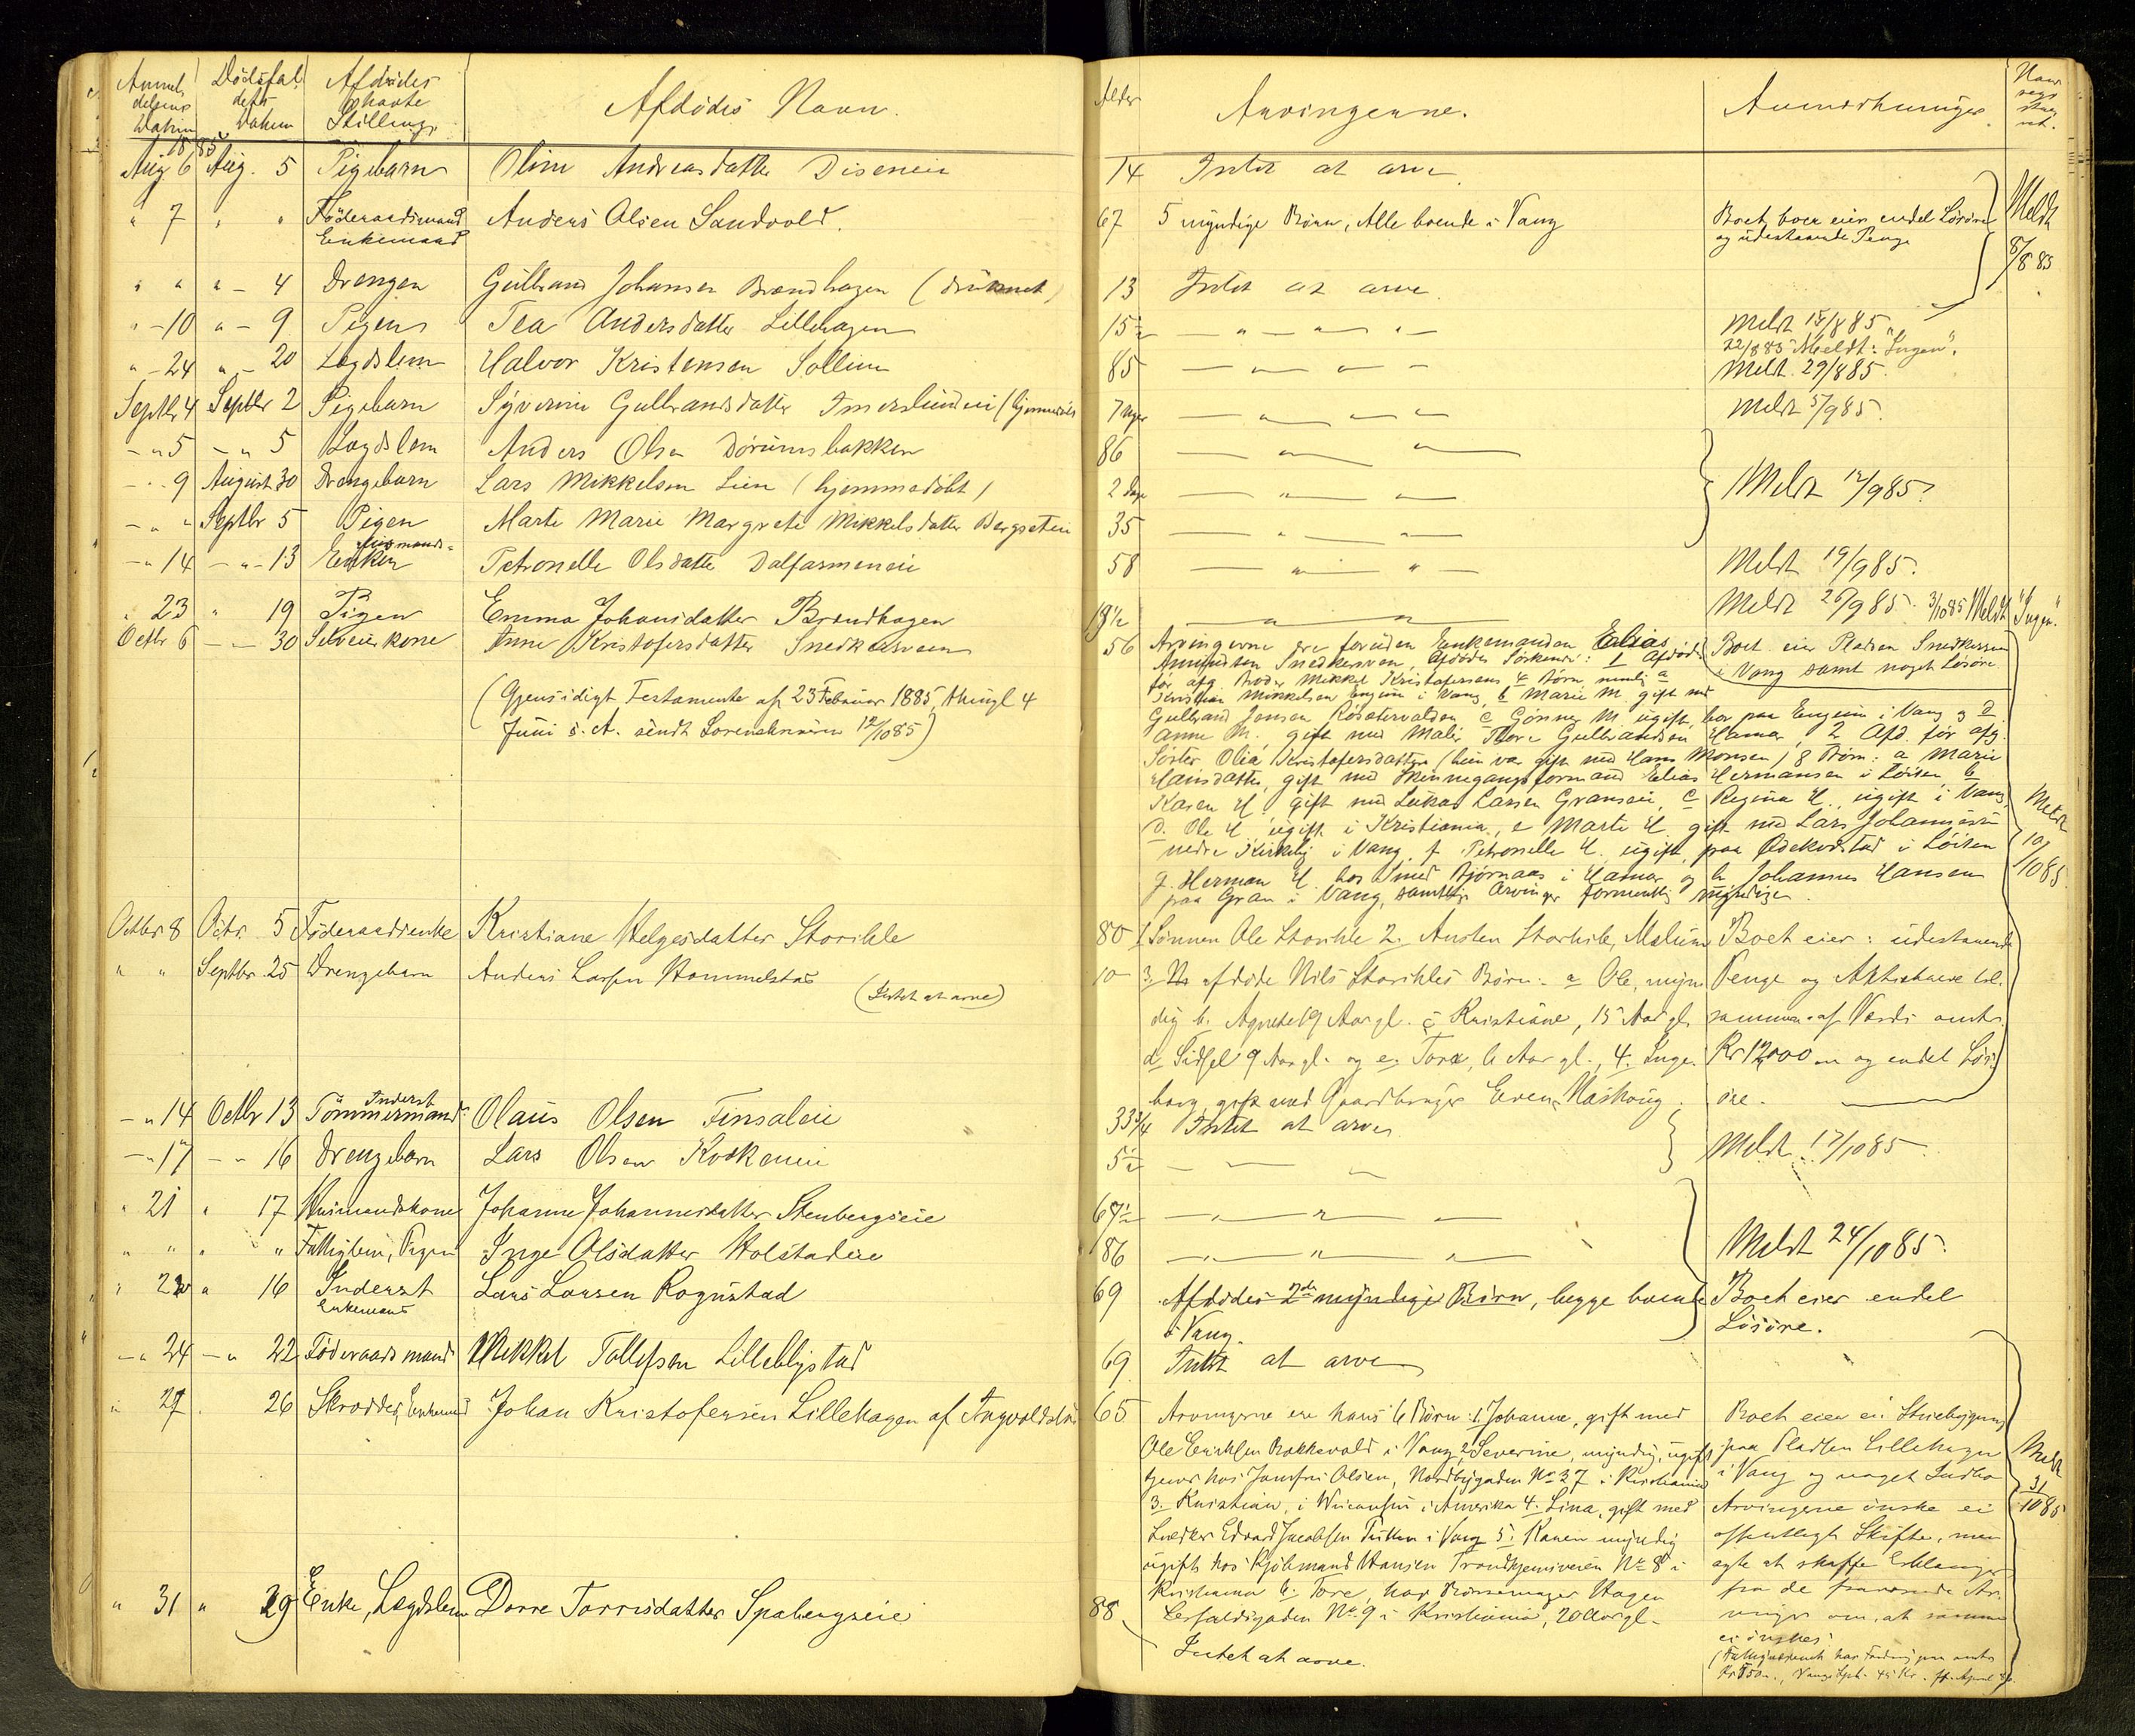 Anmeldelsens Datum
Dødsfaldets Datum
Afdødes Stilling
Afdødes Navn.
Alder
Arvingerne.
Anmærkninger.
1885
Aug. 6 Aug. 5 Pigebarn Oline Andreasdatter Diseneie 14 Intet at arve
" 7 " " Föderaadsmand Enkemand Anders Olsen Sandvold. 67 5 myndige Börn, Alle boende i Vang Boet eier endel Lösöre og udestaaende Penge
Meldt 8/8 85
" " " - 4 Drengen Gulbrand Johansen Brændhagen (druknet) 13 Intet at arve.
" - 10 " - 9 Pigen Tea Andersdatter Lillehagen 15 1/2 — " — " — " — Meldt 15/8 85
22/8 85 Meldt: "Ingen".
" - 24 " - 20 Lægdslem Halvor Kristensen Sollien 85 — " — Meldt 29/8 85.
Septbr 4 Septbr 2 Pigebarn Syverine Gulbrandsdatter Imerslundeie (hjemmedöbt 7 Uger — " — Meldt 5/9 85.
- " 5 - " 5 Lægdslem Anders Olsen Dörumsbakken 86 — " — " —
- " 9 August 30 Drengebarn Lars Mikkelsen Lien (hjemmedöbt) 2 Dage — " — Meldt 12/9 85.
- " " Septbr 5 Pigen Marte Marie Margrete Mikkelsdatter Bergseteie 35 — " —
- " 14 - " - 13 Husmands-Enken Petronelle Olsdatter Dalfarmeneie 58 — " — " — Meldt 19/9 85.
" 23 " 19 Pigen Emma Johansdatter Brændhagen 19 1/2 — " — " — Meldt 26/9 85. 3/10 85 Meldt "Ingen."
Octbr 6 - " - 30 Selveierkone Anne Kristofersdatter Snedkersveen 56 Arvingerne ere foruden Enkemanden Elias Boet eier Pladsen Snedkersveen
Amundsen Snedkersveen, Afdødes Söskende: 1 Afdöde i Vang samt noget Lösöre.
för afg. Broder Mikkel Kristofersens 4 Börn nemlig a
(Gjensidigt Testamente af 23 Februar 1885, thinglæst 4
Juni s. A. sendt Sorenskriveren 12/10 85)
Kristian Mikkelsen Engum i Vang, b Marie M. gift med
Gulbrand Jensen Rösetervolden c Gönner M. ugift, bor paa Engum i Vang og d
Anne M. gift med Maler Tore Gulbrandsen Hamar, 2 Afd. för afg.
Söster Olia Kristofersdatter (hun var gift med Hans Monsen) 8 Börn: a Marie
Hansdatter, gift med Skinnegangsformand Elias Hermansen i Löiten b
Karen H. gift med Lukas Larsen Granseie, c Regine H., ugift i Vang
d. Ole H. ugift i Kristiania, e Marte H. gift med Lars Johannesen
nedre Kirkelig i Vang, f Petronelle H. ugift, paa Ödekvistad i Löiten
g. Herman H. hos Smed Björnaas i Hamar og h Johannes Hansen
paa Gran i Vang, samtlige Arvinger formentlig myndige.
Meldt 10/10 85.
Octbr 8 Octr. 5 Föderaadsenke Kristiane Helgesdatter Storihle 80 1. Sönnen Ole Storihle 2. Austen Storhile, Malum Boet eier: udestaaende
" " Septbr 25 Drengebarn Anders Larsen Hommelstad 10 3. afdöde Nils Storihles Börn: a Ole, myn- Penge og Aktiebreve til-
(Intet at arve)
dig b. Agnete 19 Aar gl. c Kristiane, 15 Aar gl. sammen af Værdi omtr.
d Sidsel 9 Aar gl. og e. Tora, 6 Aar gl., 4. Inge- Kr 12000 og endel Lös-
borg, gift med Gaardbruger Even Kaskoug. öre.
- " 14 Octbr 13 Inderst Tömmermand Olaus Olsen Finsaleie 33 3/4 Intet at arve
- " 17 - " 16 Drengebarn Lars Olsen Kvækeneie 5 1/2 — " — Meldt 17/10 85
" 21 " 17 Husmandskone Johanne Johannesdatter Stenbergseie 67 1/2 — " — " —
" " " " Fattiglem, Pigen Inge Olsdatter Holstadeie 86 — " — " — " — Meldt 24/10 85.
" 22 " 16 Inderst Enkemand Lars Larsen Rognstad 69 Afdödes 2de myndige Börn, begge boende Boet eier endel
i Vang. Lösöre.
- " 24 - " 22 Föderaadsmand Mikkel Tollefsen Lilleblystad 69. Intet at arve
" 27 . 26 Skrædder, Enkemand Johan Kristofersen Lillehagen af Ingvoldstad 65 Arvingerne ere hans 6 Börn: 1. Johanne, gift med Boet eier ei Stuebygning
Ole Eriksen Bakkevold i Vang 2, Severine, myndig, ugift paa Pladsen Lillehagen
tjener hos Jomfru Olsen, Nordbygaden No 27 i Kristiania i Vang og noget Indbo
3. Kristian, i Wisconsin i Amerika 4. Lina, gift med Arvingerne önske ei
Snedker Edvard Jacobsen i Vang 5. Karen myndig offentligt Skifte, men
ugift hos Kjöbmand Hansen Trondhjemsveien No 8 i agte at skaffe Erklæring
Kristiania 6. Tore, hos Hagen fra de fraværende Ar-
No 9 i Kristiania, 20 Aar gl. vinger om, at samme
ei önskes.
Meldt 31/10 85
" 31 " 29 Enke, Lægdslem Dorre Torrisdatter Spabergseie 88 Intet at arve.
(Fattigvæsenet har Fordring paa omtr.